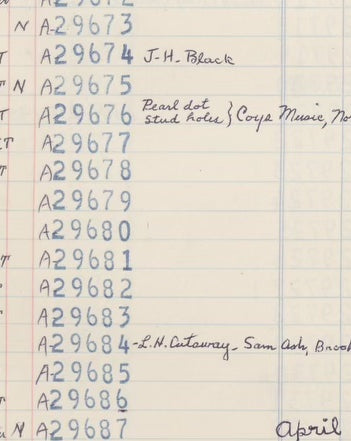 N A-29673
T A29674 J-H. Black
T N A29675
T A29676 Pearl dot stud holes } Coyle Music, No
T A29677
T A29678
A29679
A29680
T A-29681
A29682
A29683
A29684-L.H. Cutaway- Sam Ash, Brook
A-29685
T A29686
N A29687 April